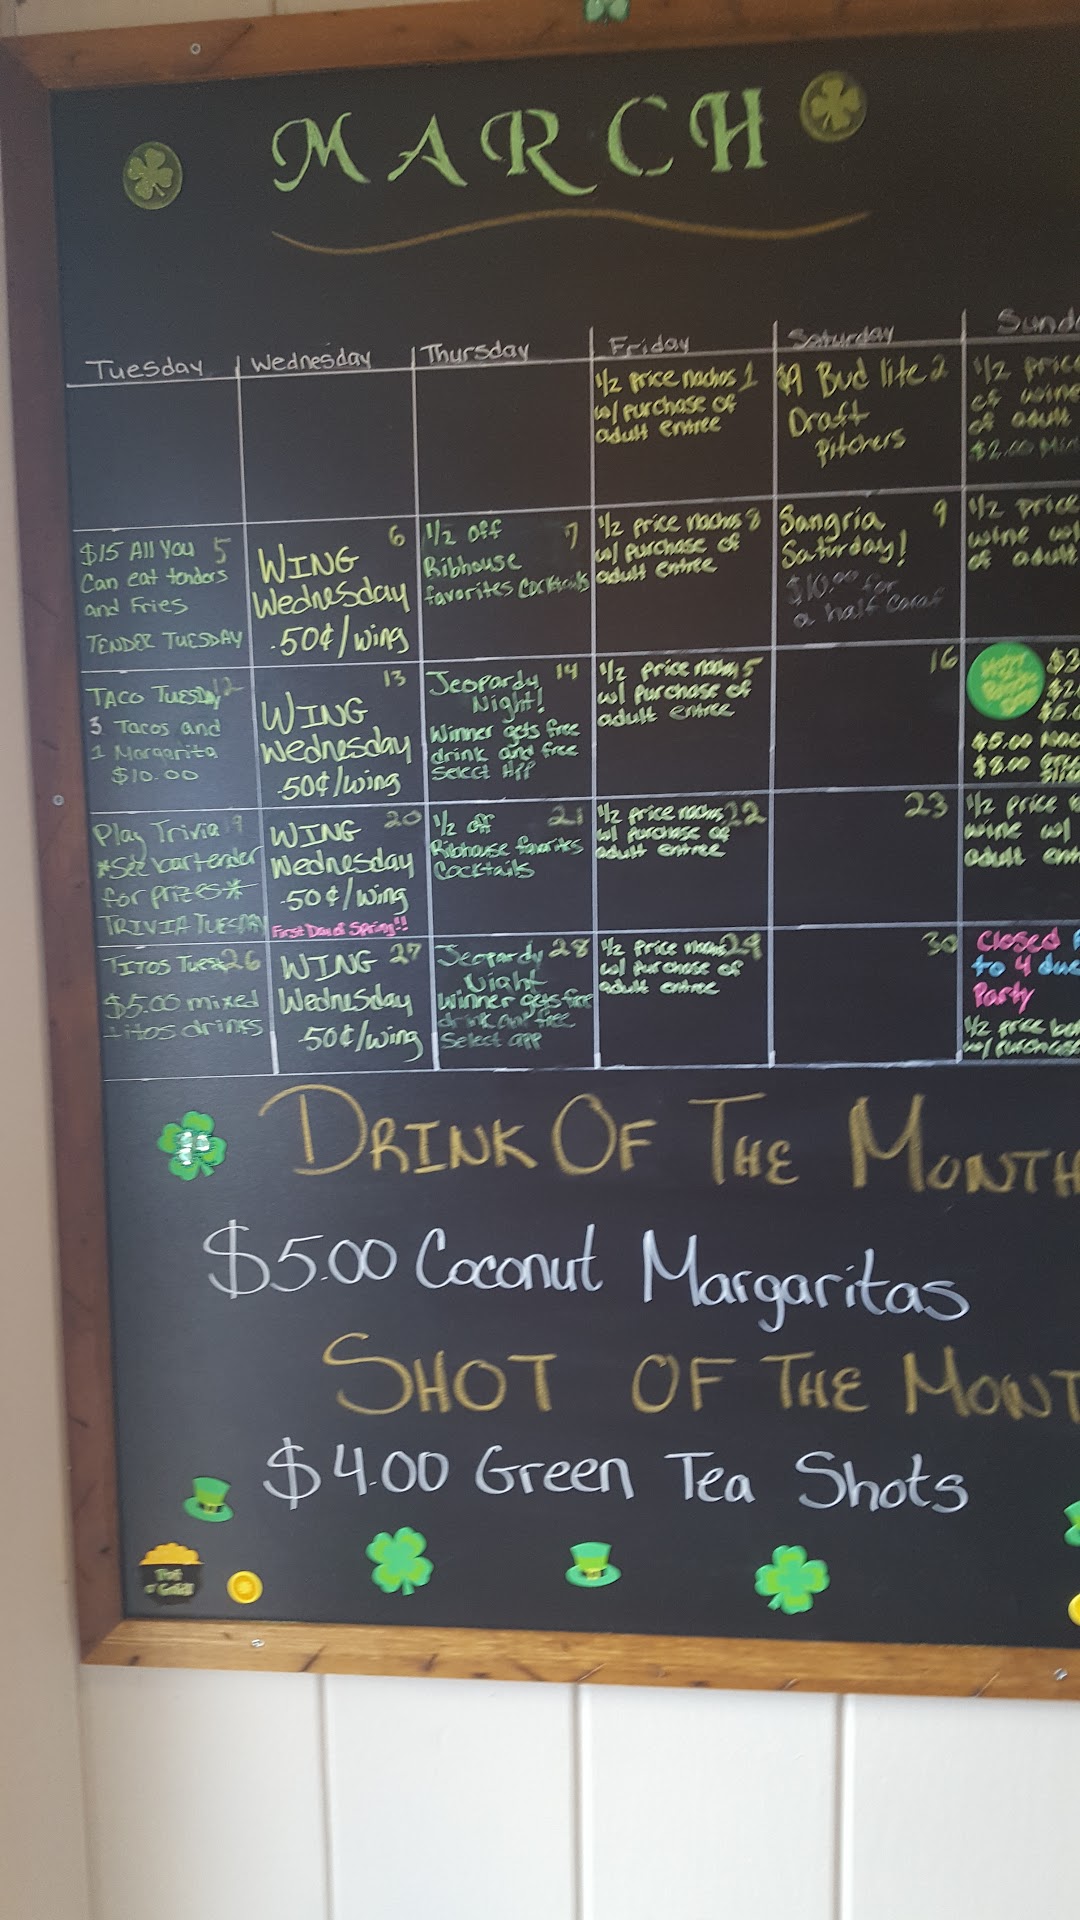 MARCH
Tuesday Wednesday Thursday Friday Saturday
1/2 price nachos 1
w/ purchase of
adult entree
$9 Bud lite 2
Draft
Pitchers
1/2 price
of wine
of adult
$2.00
$15 All You 5
Can eat tenders
and Fries
TENDER TUESDAY
6
WING
Wednesday
.50¢/wing
1/2 off 7
Ribhouse
favorites Cocktails
1/2 price nachos 8
w/ purchase of
adult entree
Sangria 9
Saturday!
$10.00 for
a half Caraf
1/2 price
wine w/
of adult
TACO TUESDAY 12
3 Tacos and
1 Margarita
$10.00
13
WING
Wednesday
.50¢/wing
Jeopardy 14
Night!
Winner gets free
drink and free
Select App
1/2 price nachos 15
w/ purchase of
adult entree
16
$5.00
$8.00
Play Trivia 19
*See bartender
for prizes*
TRIVIA TUESDAY
WING 20
Wednesday
.50¢/wing
First Day of Spring!!
1/2 off 21
Ribhouse favorites
Cocktails
1/2 price nachos 22
w/ purchase of
adult entree
23
1/2 price
wine w/
adult
TITOS Tues 26
$5.00 mixed
titos drinks
WING 27
Wednesday
.50¢/wing
Jeopardy 28
Night
Winner gets free
drink and free
Select app
1/2 price nachos 29
w/ purchase of
adult entree
30
Closed
to 4 due
Party
1/2 price
w/ purchase
DRINK OF THE MONTH
$5.00 Coconut Margaritas
SHOT OF THE MONT
$4.00 Green Tea Shots
Pot
o' Gold